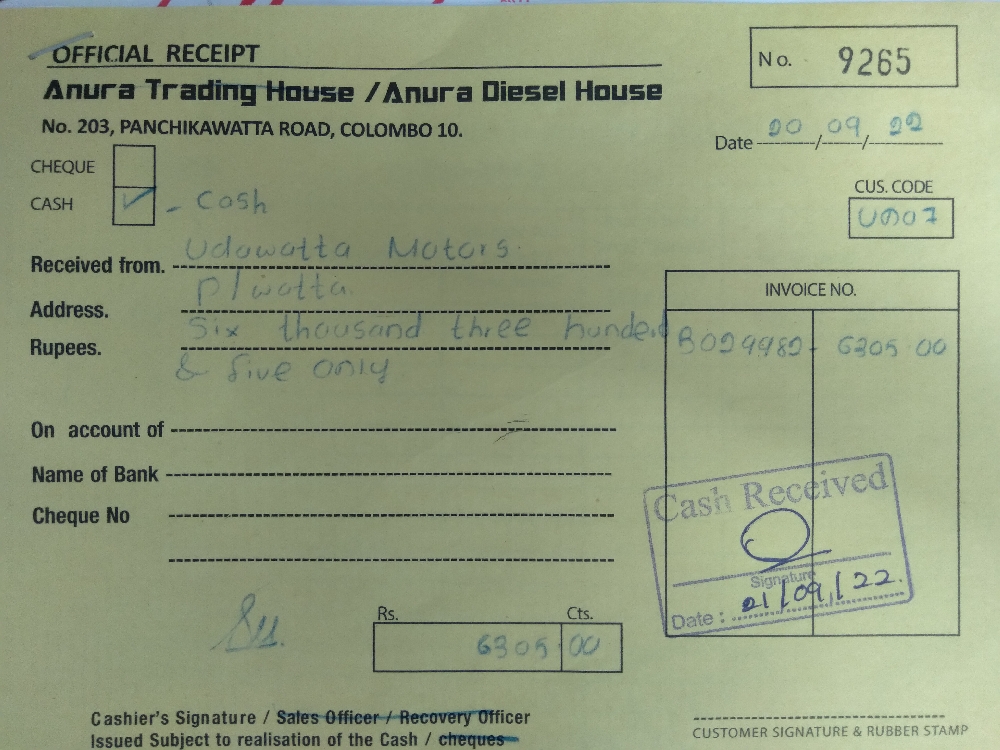 OFFICIAL RECEIPT
No. 9265
Anura Trading House / Anura Diesel House
No. 203, PANCHIKAWATTA ROAD, COLOMBO 10.
Date 20/09/22
CHEQUE
CASH ✓ - Cash
CUS. CODE
U007
Received from. Udawatta Motors.
Address. P/watta.
Rupees. Six thousand three hunderd
& five only
INVOICE NO.
B029982- 6305 00
On account of
Name of Bank
Cheque No
Cash Received
Signature
Date : 21/09/22.
Rs. Cts.
6305.00
Cashier's Signature / Sales Officer / Recovery Officer
Issued Subject to realisation of the Cash / cheques
CUSTOMER SIGNATURE & RUBBER STAMP